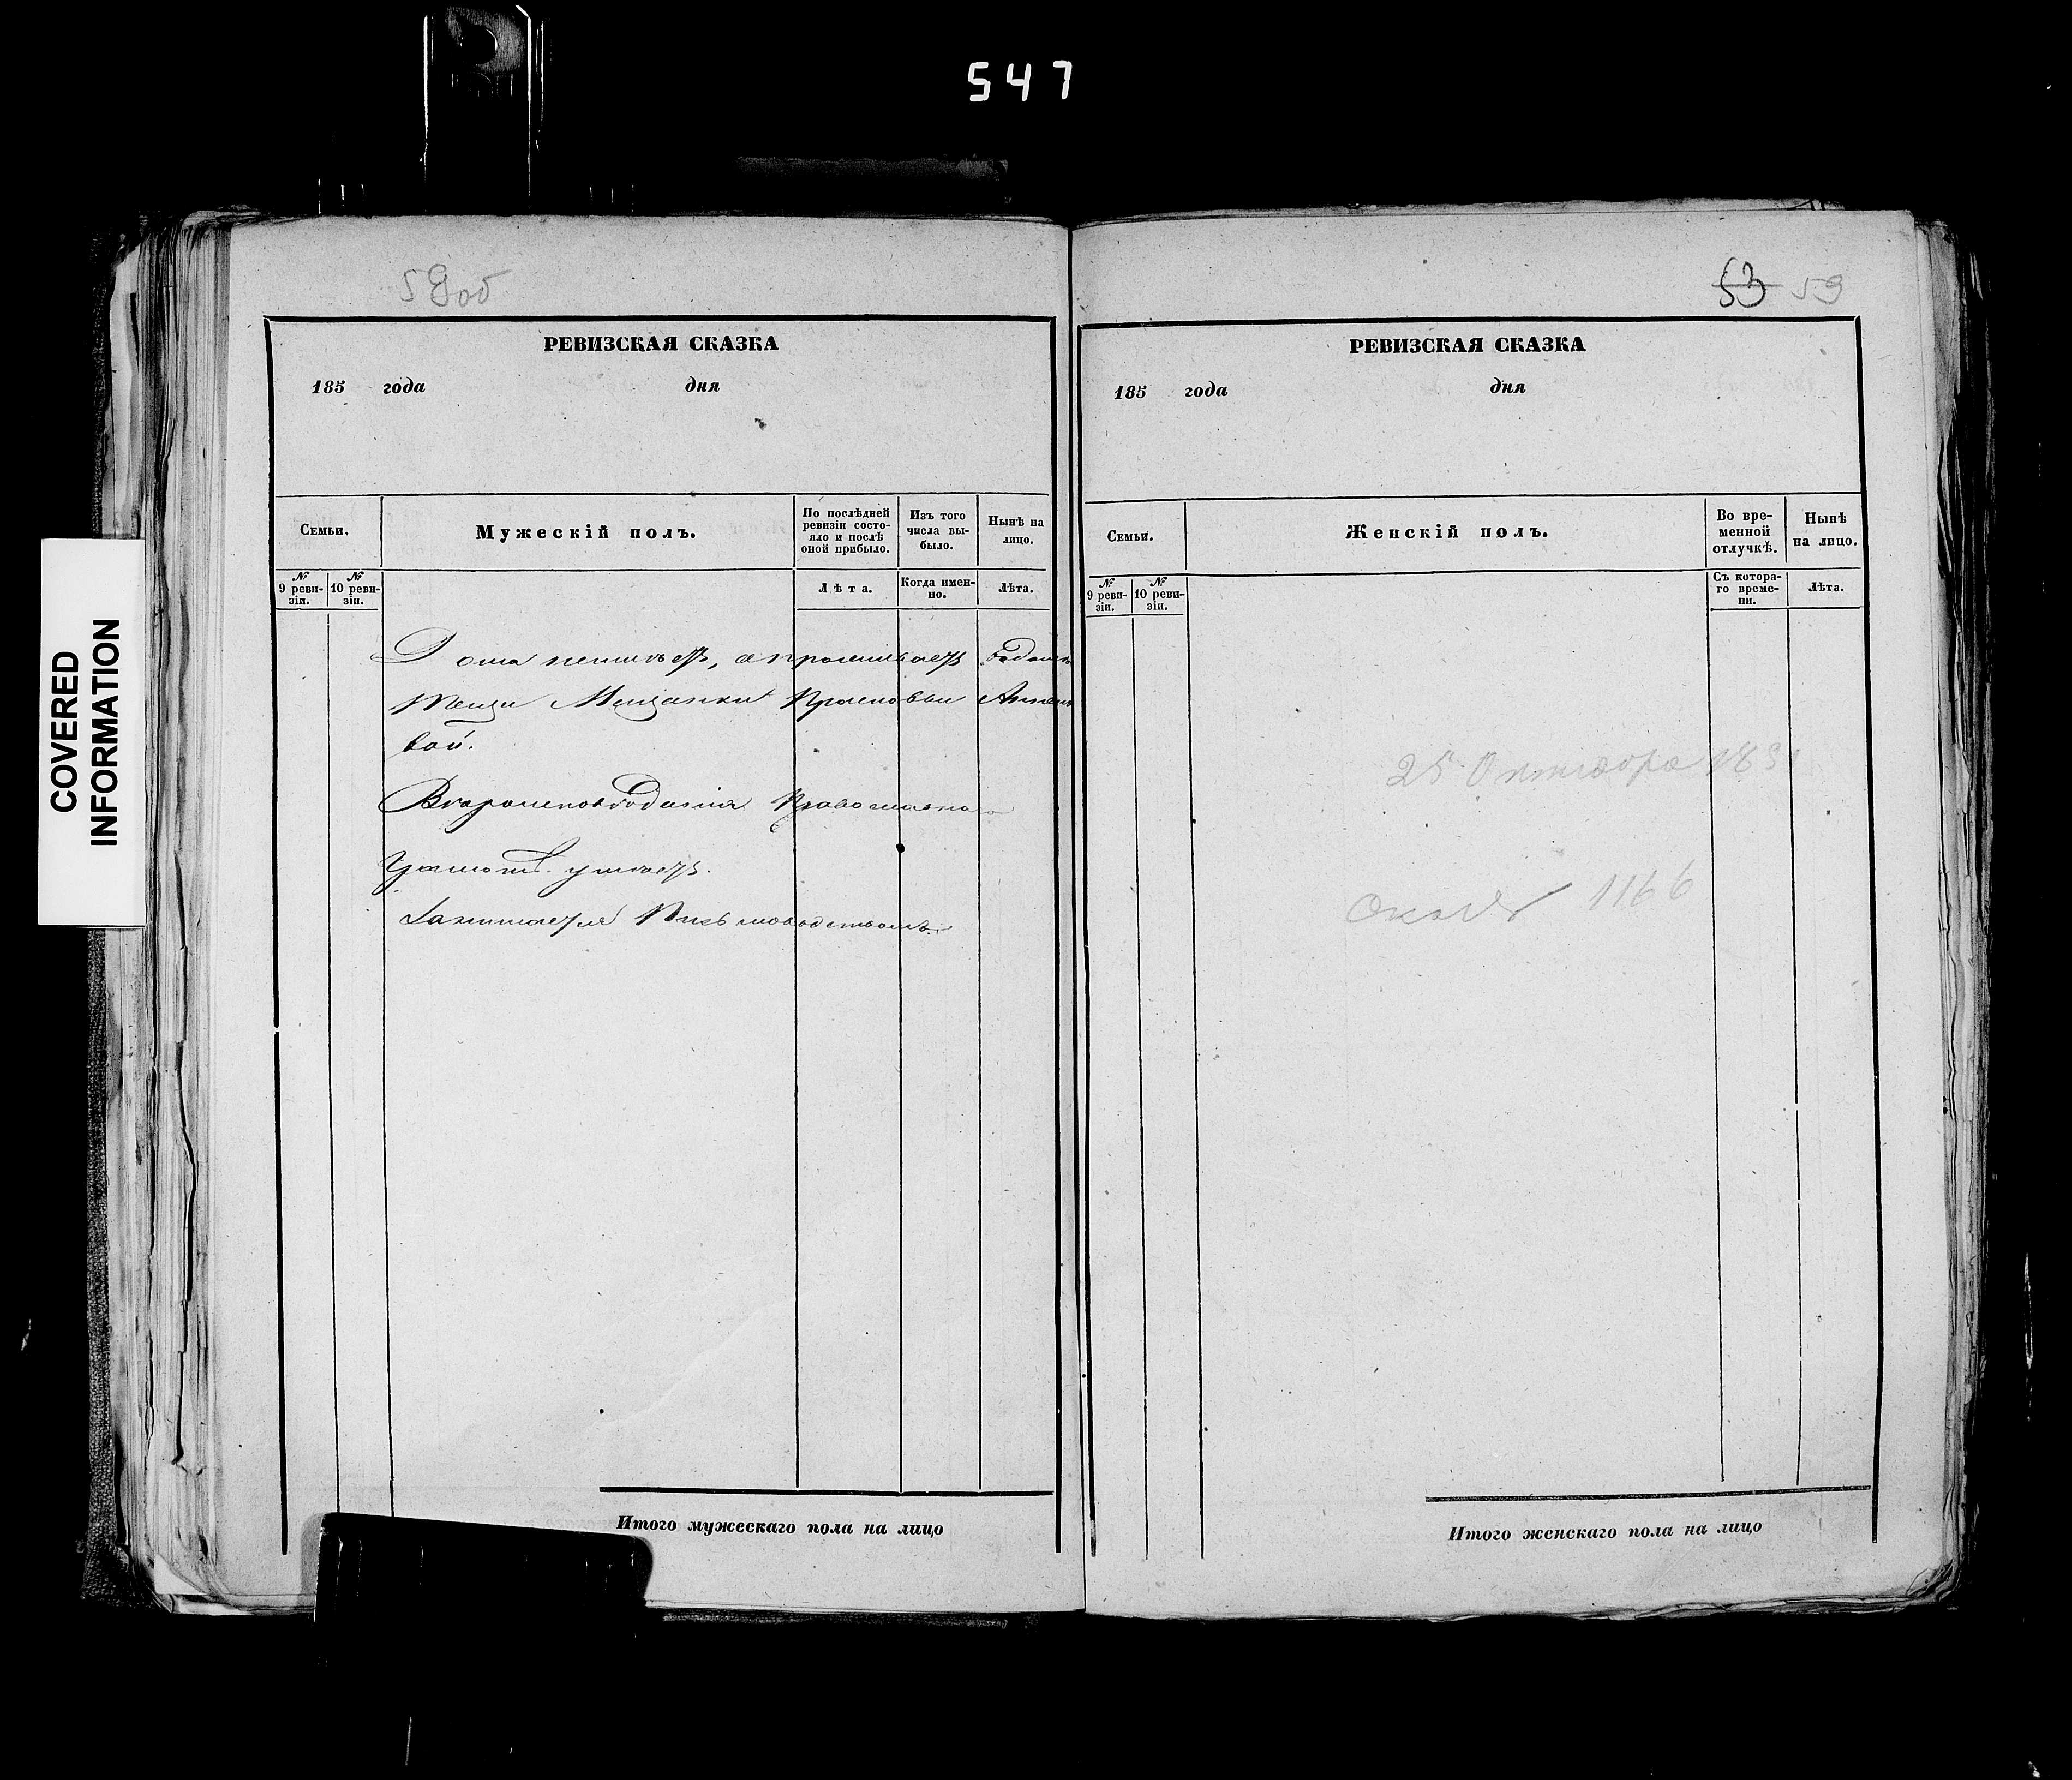 547
COVERED
INFORMATION
58об
РЕВИЗСКАЯ СКАЗКА
185 года дня
Семьи.
Мужескій полъ.
По послѣдней
ревизіи состо-
яло и послѣ
оной прибыло.
Изъ того
числа вы-
было.
Нынѣ на
лицо.
№
9 реви-
зіи.
№
10 реви-
зіи.
Лѣта.
Когда имен-
но.
Лѣта.
Дома неимѣетъ, а проживаетъ въ домѣ
тещи Мещанки Прасковьи
вой.
Вѣроисповѣданія Православнаго
Грамотѣ умѣетъ.
Занимается Письмоводствомъ.
Итого мужескаго пола на лицо
53 59
РЕВИЗСКАЯ СКАЗКА
185 года дня
Семьи.
Женскій полъ.
Во вре-
менной
отлучкѣ.
Нынѣ
на лицо.
№
9 реви-
зіи.
№
10 реви-
зіи.
Съ котора-
го време-
ни.
Лѣта.
25 Октября
1166
Итого женскаго пола на лицо